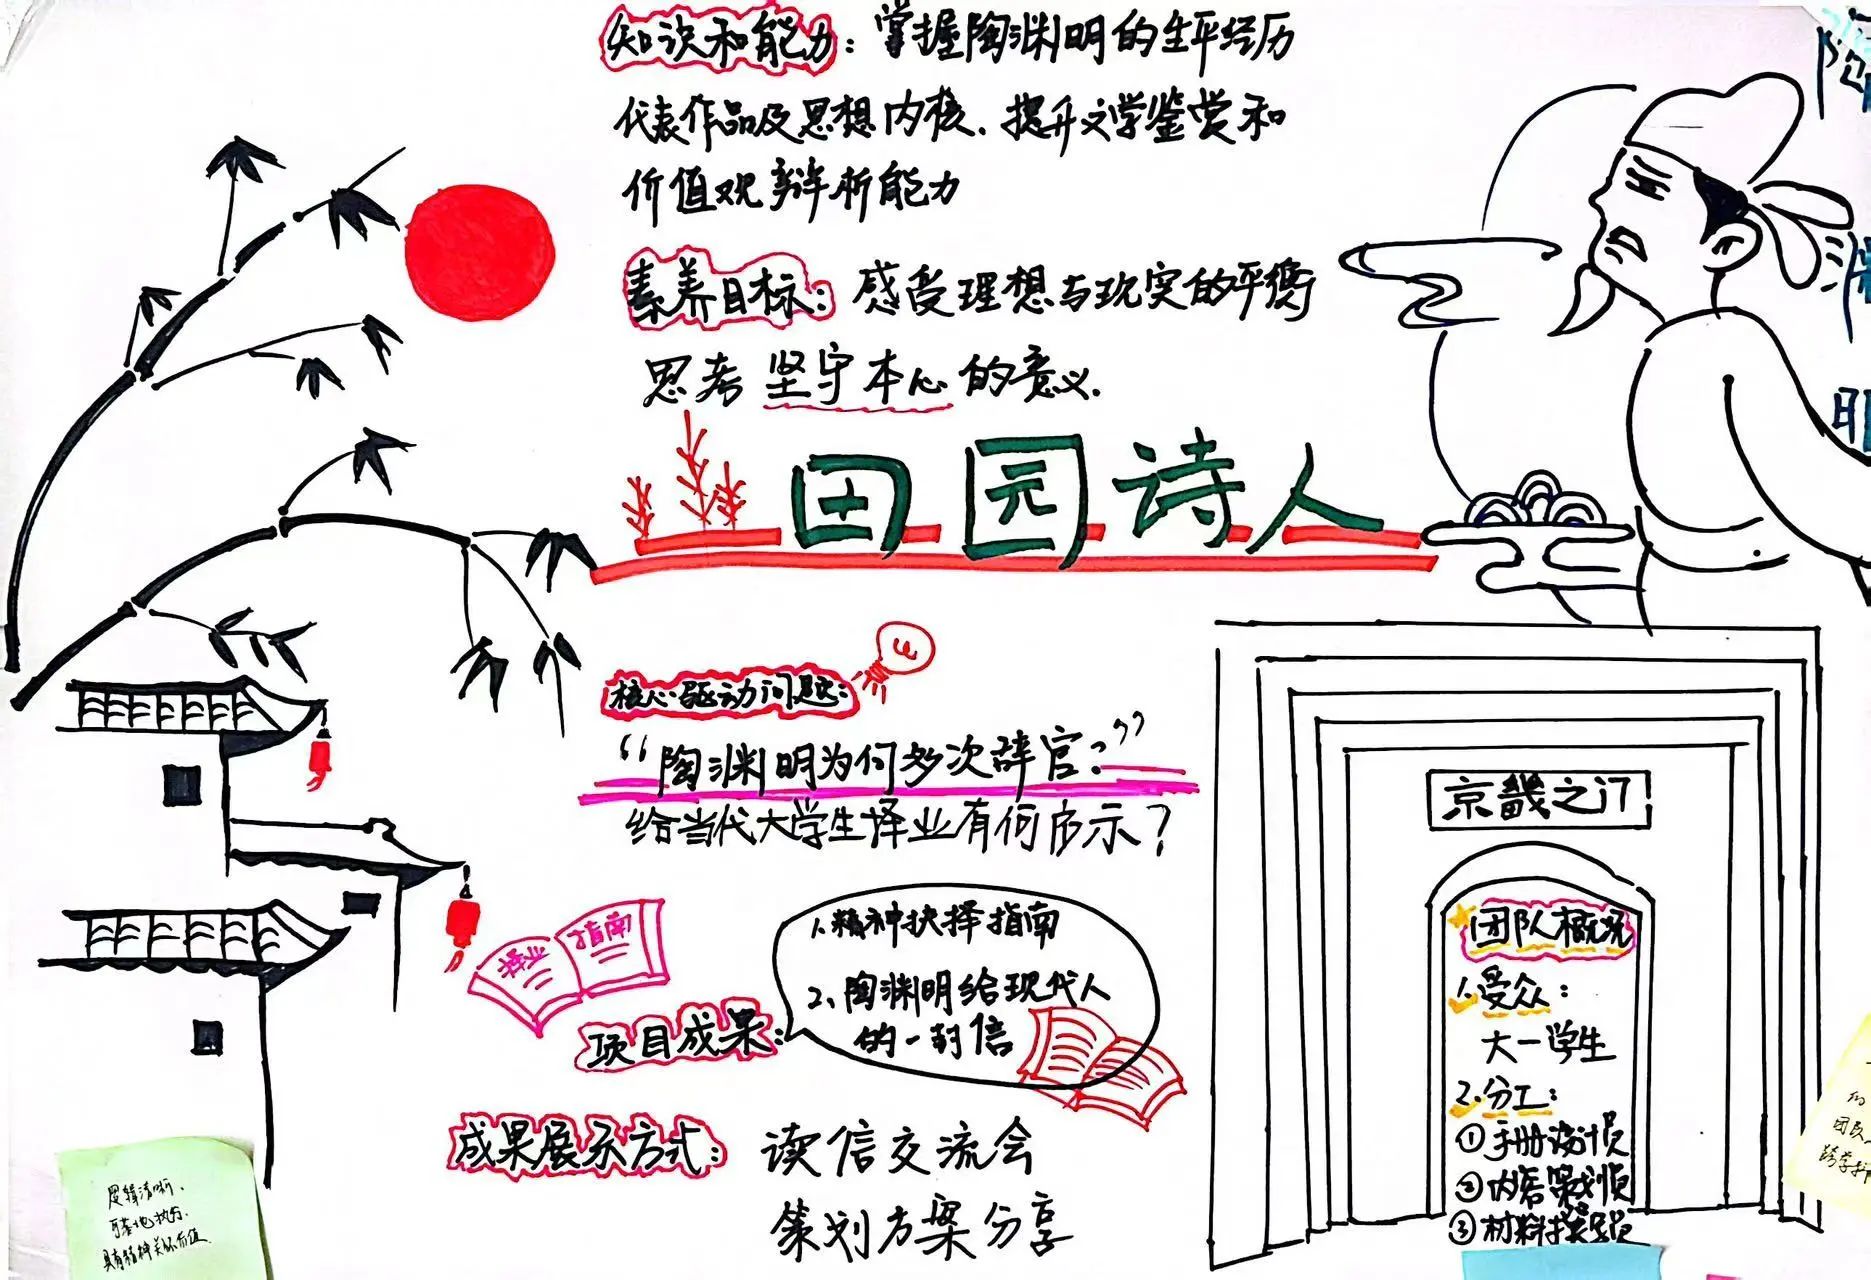 知识和能力：掌握陶渊明的生平经历
代表作品及思想内核、提升文学鉴赏和
价值观辨析能力
素养目标：感受理想与现实的平衡
思考坚守本心的意义.
田园诗人
核心驱动问题：
“陶渊明为何多次辞官？”
给当代大学生择业有何启示？
择业 指南
项目成果：
1.精神抉择指南
2.陶渊明给现代人
的一封信
成果展示方式：读信交流会
策划方案分享
京畿之门
团队概况
1.受众：
大一学生
2.分工：
①手册设计员
②内容策划员
③材料搜集员
逻辑清晰、
可落地执行.
具有精神关怀价值.
的
团队
跨学科